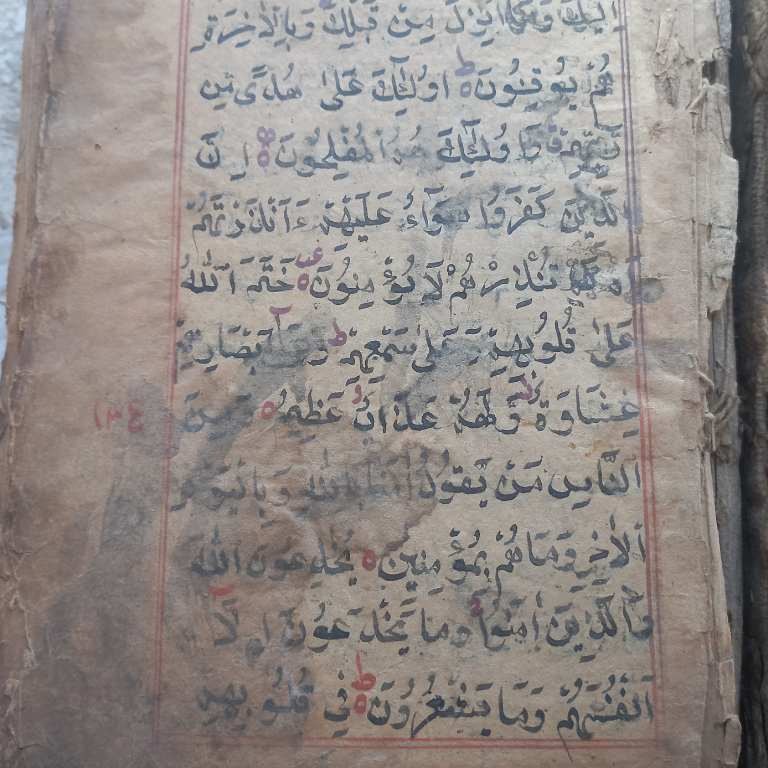 اِلَيْكَ وَمَا اُنْزِلَ مِنْ قَبْلِكَ وَبِالْاٰخِرَةِ
هُمْ يُوْقِنُوْنَ ط اُولٰٓئِكَ عَلٰى هُدًى مِّنْ
رَّبِّهِمْ وَاُولٰٓئِكَ هُمُ الْمُفْلِحُوْنَ اِنَّ
الَّذِيْنَ كَفَرُوْا سَوَآءٌ عَلَيْهِمْ ءَاَنْذَرْتَهُمْ
اَمْ لَمْ تُنْذِرْهُمْ لَا يُؤْمِنُوْنَ خَتَمَ اللّٰهُ
عَلٰى قُلُوْبِهِمْ وَعَلٰى سَمْعِهِمْ ط وَعَلٰٓى اَبْصَارِهِمْ
غِشَاوَةٌ وَّلَهُمْ عَذَابٌ عَظِيْمٌ وَمِنَ
النَّاسِ مَنْ يَّقُوْلُ اٰمَنَّا بِاللّٰهِ وَبِالْيَوْمِ
الْاٰخِرِ وَمَا هُمْ بِمُؤْمِنِيْنَ يُخٰدِعُوْنَ اللّٰهَ
وَالَّذِيْنَ اٰمَنُوْا وَمَا يَخْدَعُوْنَ اِلَّآ
اَنْفُسَهُمْ وَمَا يَشْعُرُوْنَ ط فِيْ قُلُوْبِهِمْ